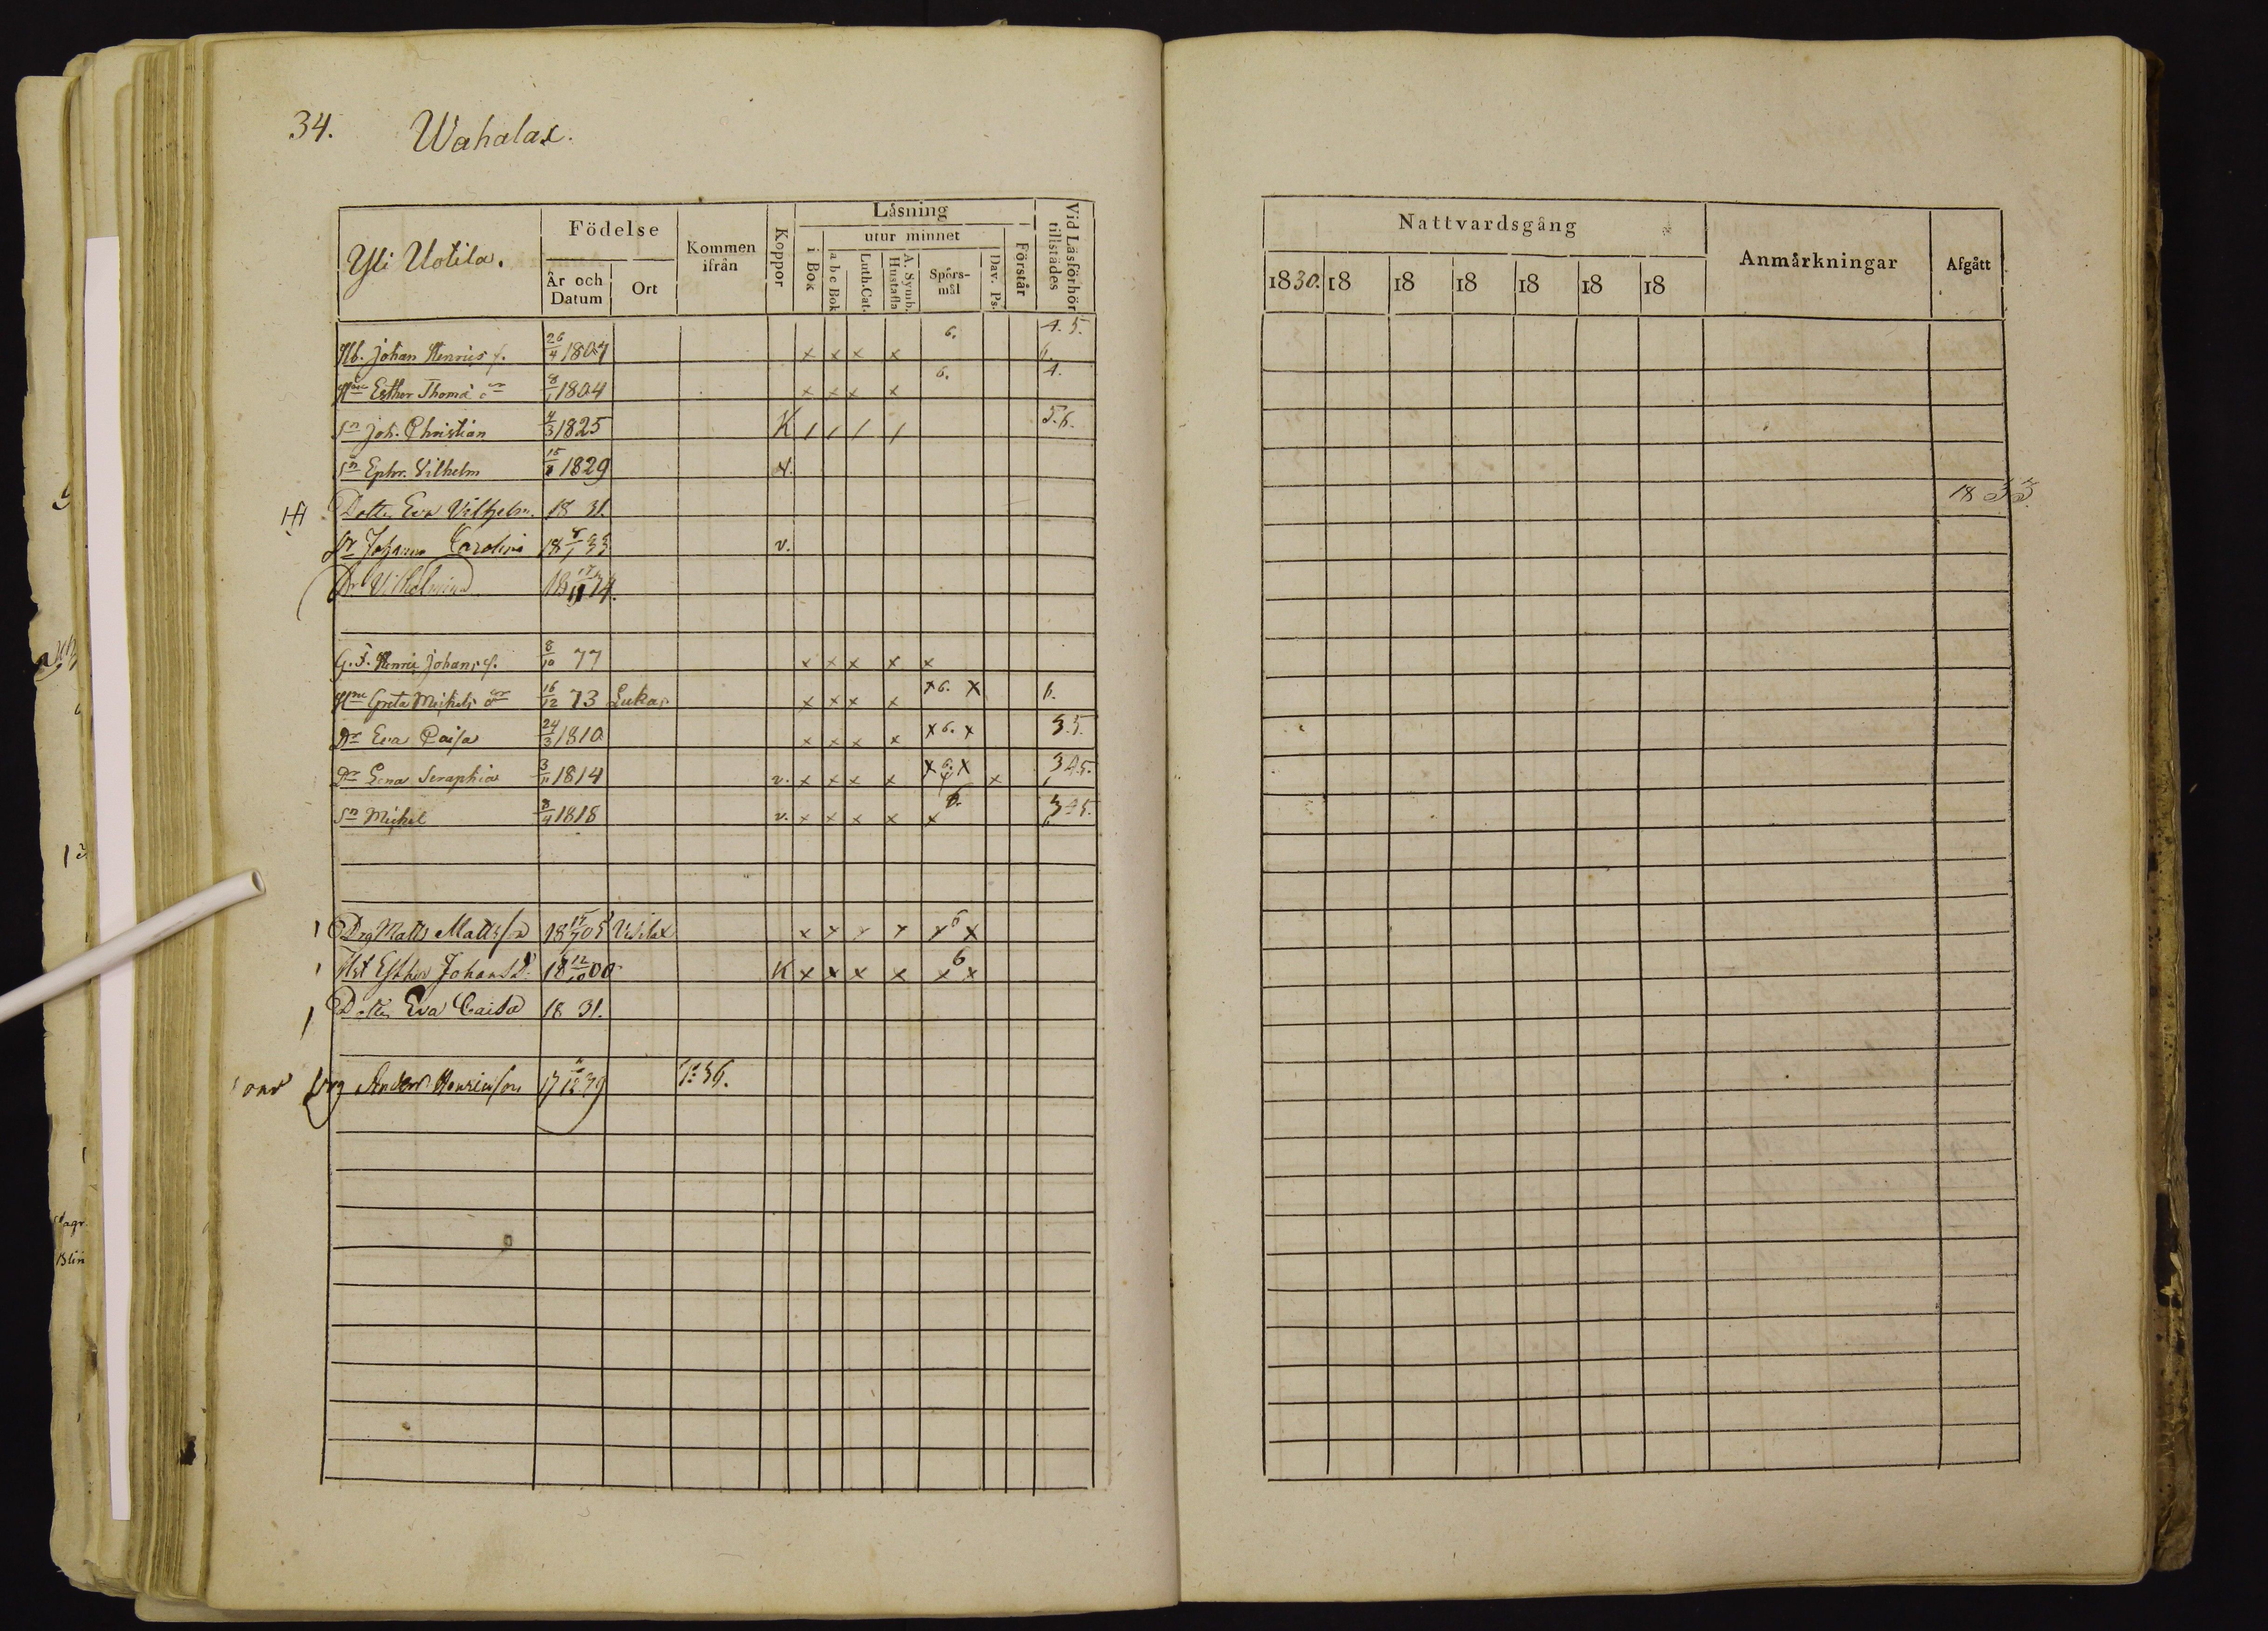 34. Wahalax.
Yli Uotila.
Födelse
År och Datum
Ort
Kommen ifrån
Koppor
Läsning
utur minnet
i Bok
a b c Bok
Luth. Cat.
A. Symb. Hustafla
Spörsmål
Dav. Ps.
Förstår
Vid Läsförhör tillstädes
Nattvardsgång
1830. 18 18 18 18 18 18
Anmärkningar
Afgått
Hb. Johan Henrics s. 26/4 1807 x x x x 6. 4. 5. 6.
Esther Thomæ 8/1 1804 x x x x 6. 4.
Sn Joh. Christian 4/3 1825 K / / / / 5. 6.
Sn Ephr. Vilhelm 1829
Dotter Eva Vilhelm. 18 31. 18 33
Dr Johanna Carolina 18 33 v.
Dr Vilhelmina
G.F. Henric Johans s. 8/10 77 x x x x x
Greta Michels dr 16/12 73 Lukas x x x x x 6. x 6.
Dr Eva Caisa 24/3 1810 x x x x x 6. x 3. 5.
Dr Lena Seraphia 3/11 1814 v. x x x x x 6. x x 3 4. 5.
Sn Michel 8/4 1818 v. x x x x x 6. 3 4 5. 6.
Drg Matts Mattsson 18 05 x x x x x 6 x
Hst Esther Johansd. 18 12/10 00 K x x x x x 6 x
Dotter Eva Caisa 18 31.
Drg Anders Henricsson 17 79 36.